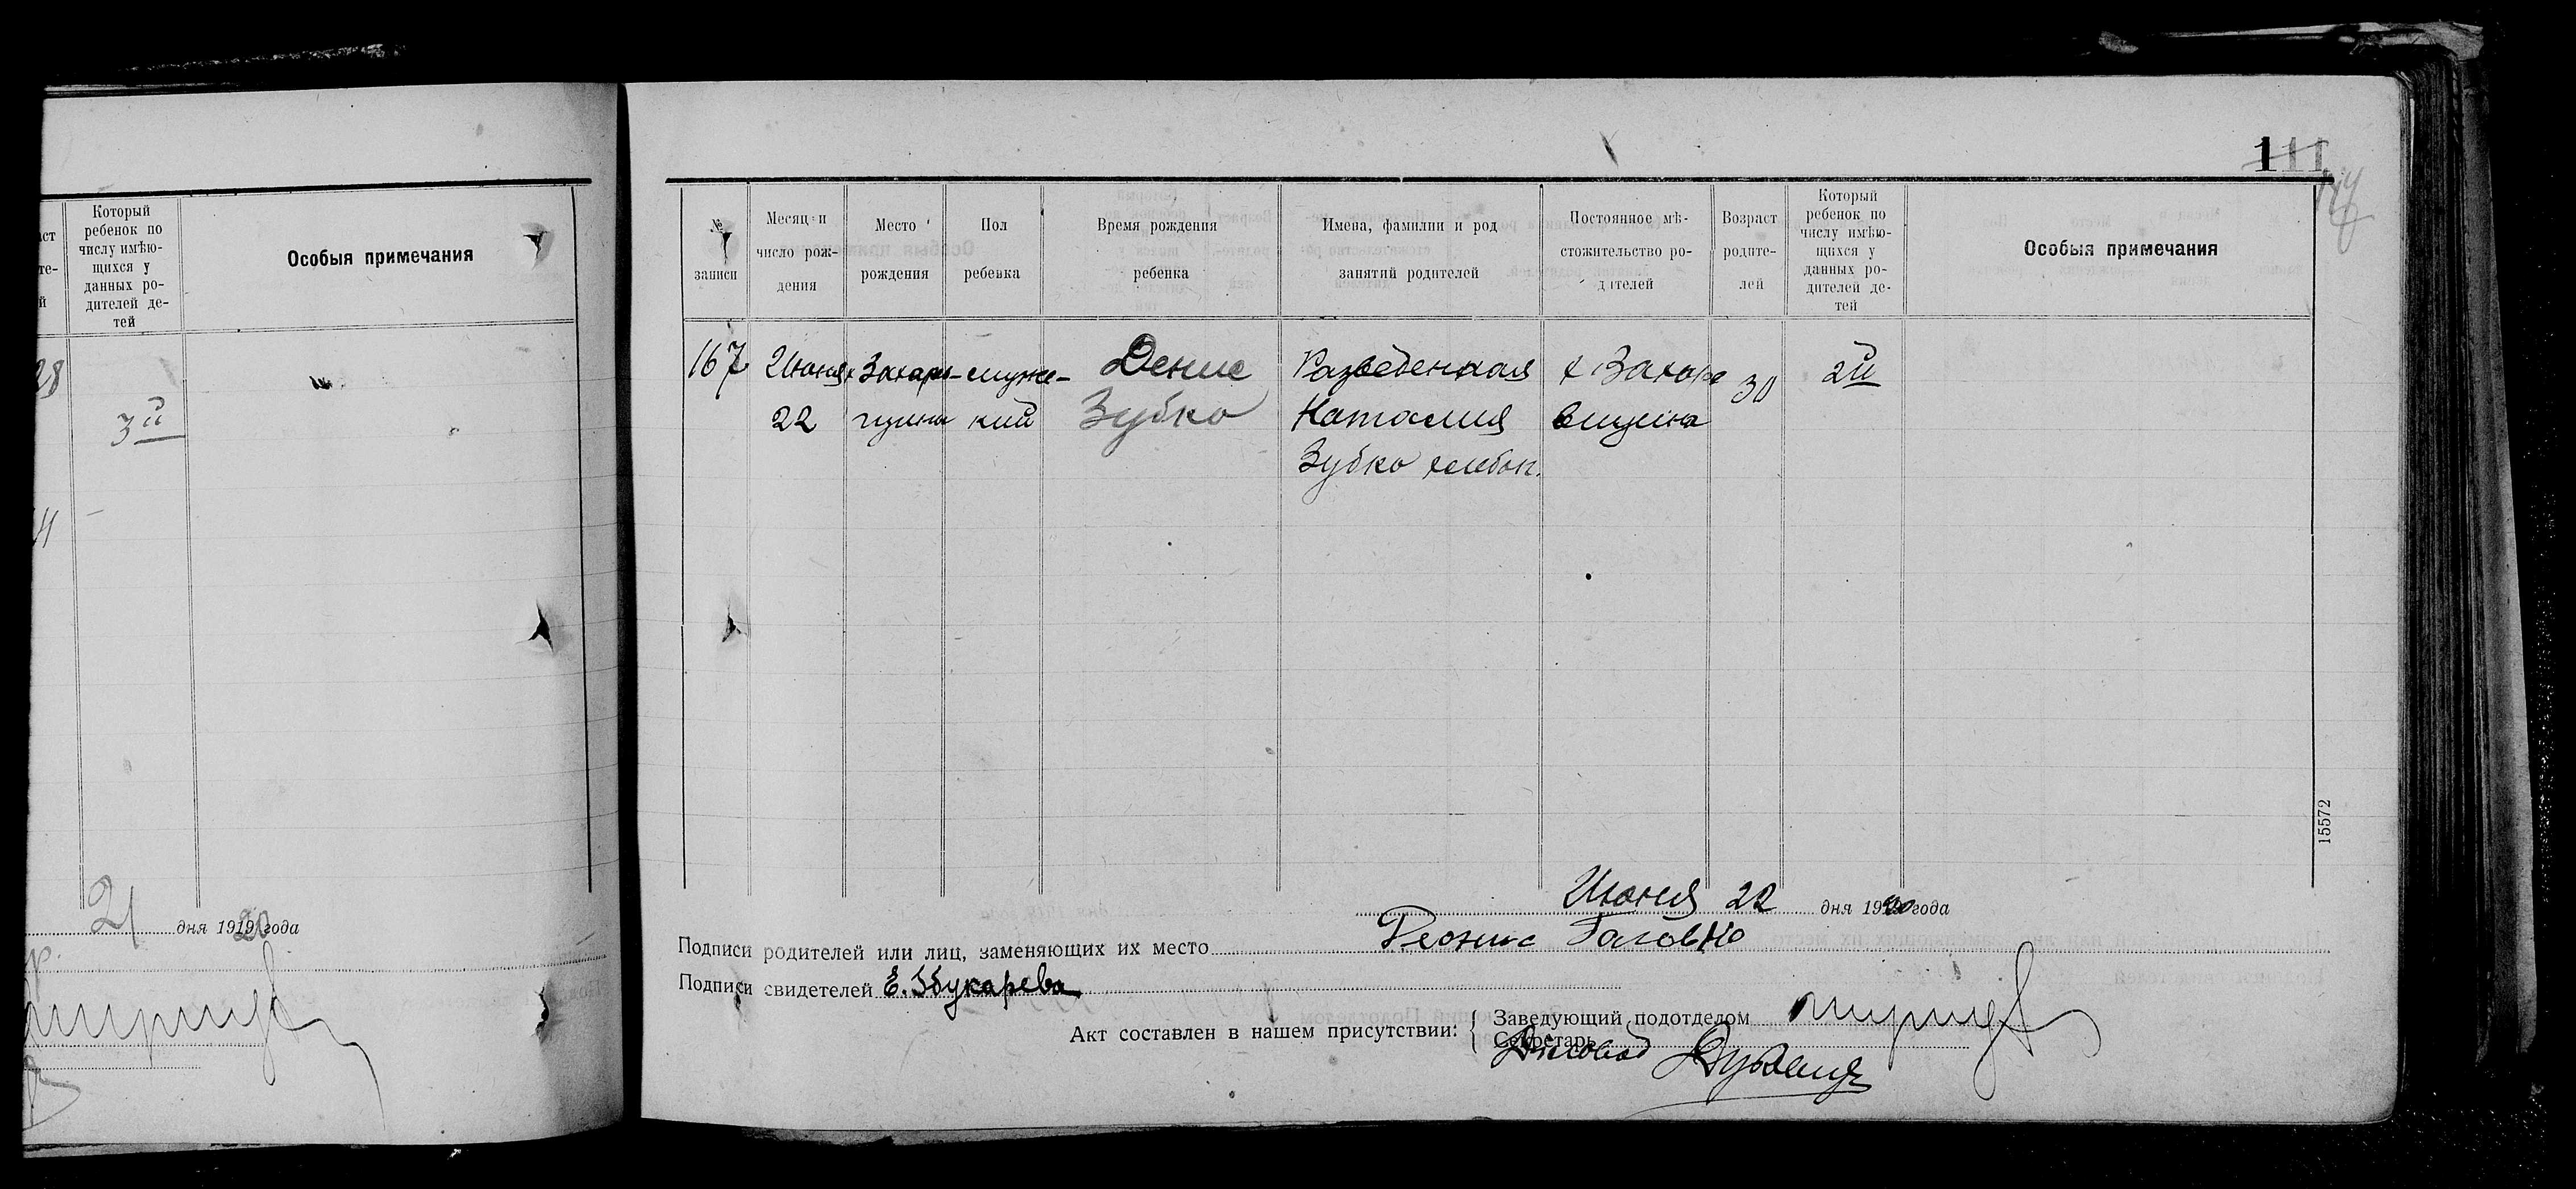 111
Который
ребенок по
числу имѣю-
щихся у
данных ро-
дителей де-
тей
Особыя примечания
28
3й
21 дня 1920 года
№
записи
Месяц и
число рож-
дения
Место
рождения
Пол
ребенка
Время рождения
ребенка
Имена, фамилии и род
занятий родителей
Постоянное мѣ-
стожительство ро-
дителей
Возраст
родите-
лей
Который
ребенок по
числу имѣю-
щихся у
данных ро-
дителей де-
тей
Особыя примечания
167 Июня х Захарв- мужс- Денис Разведенная х Захаре 30 2й
22 щина кий Зубко Наталия вщина
Зубко хлебоп.
15572
Июня 22 дня 1920 года
Подписи родителей или лиц, заменяющих их место
Подписи свидетелей Е. Букарева
Акт составлен в нашем присутствии: { Заведующий подотделом
Секретарь